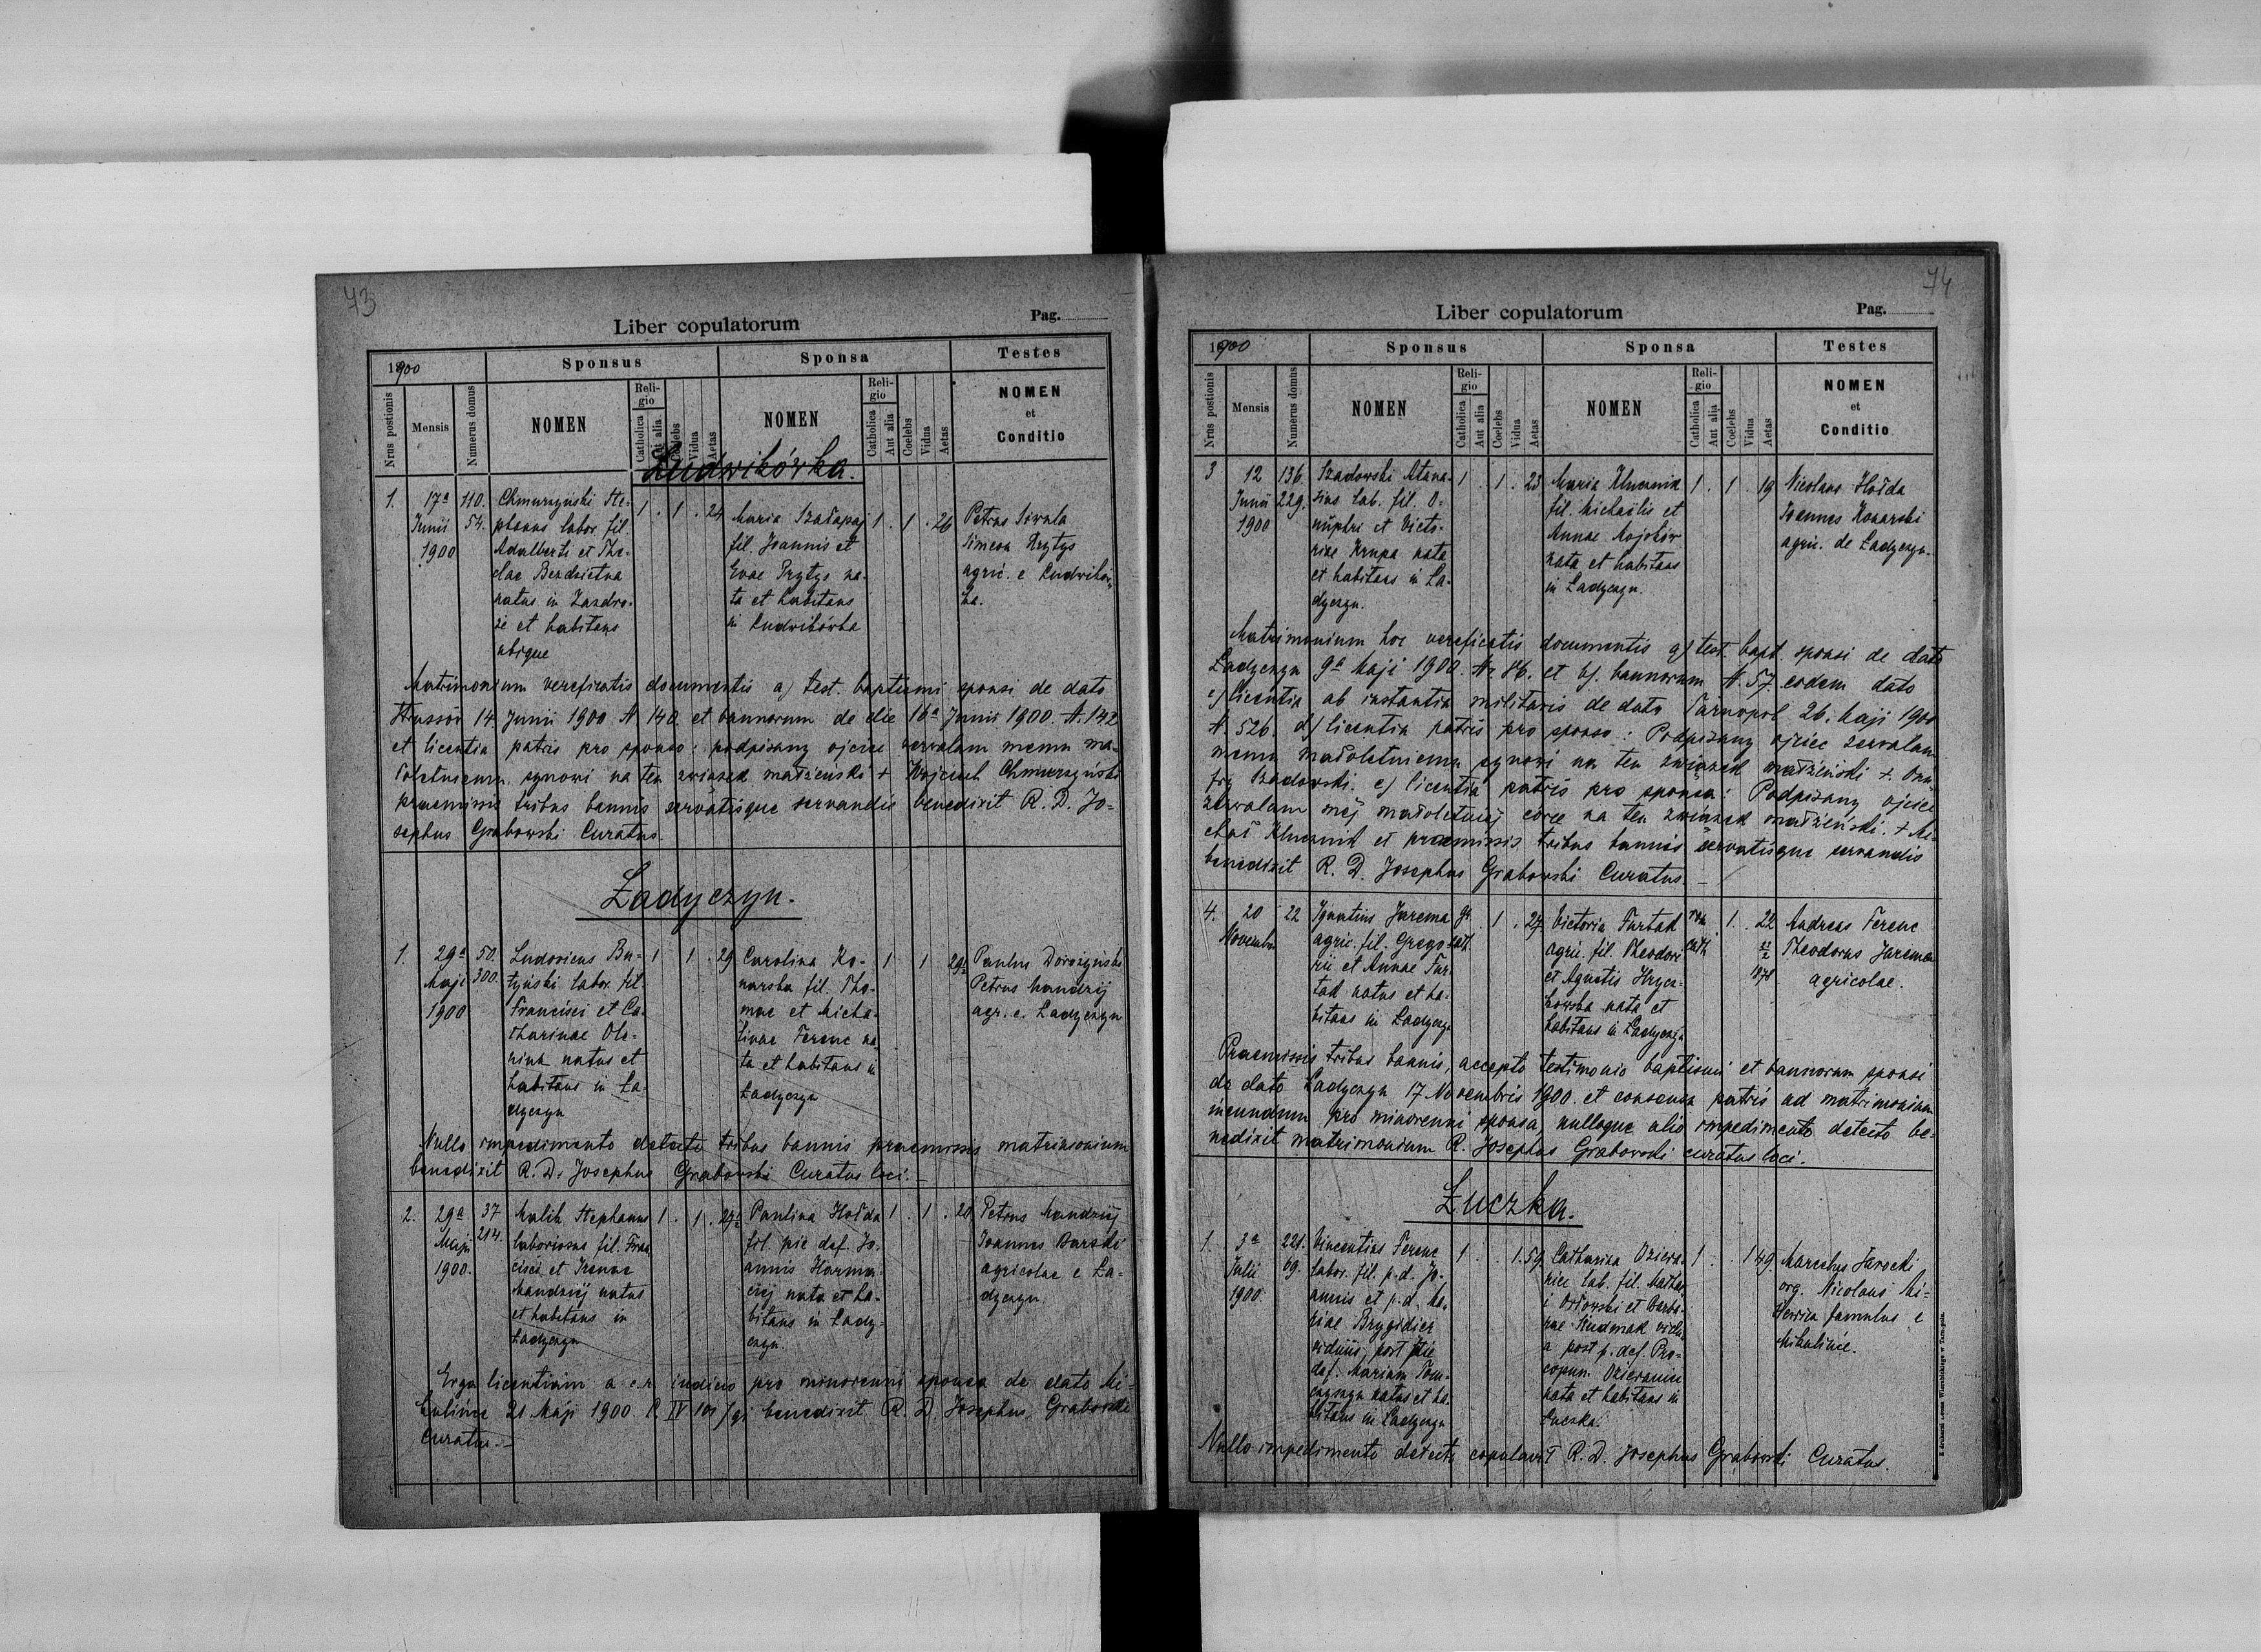 73
Liber copulatorum
Pag.
1900
Sponsus
Sponsa
Testes
Nrus postionis
Mensis
Numerus domus
NOMEN
Religio
Catholica
Aut alia
Coelebs
Vidua
Aetas
NOMEN
Religio
Catholica
Aut alia
Coelebs
Vidua
Aetas
NOMEN
et
Conditio
Ludwikówka.
1.
17ª
Junii
1900
110.
54.
Chmurzyński Ste-
phanus labor. fil.
Adalberti et The-
clae
natus in Zazdro-
sć et habitans
ubique
1 . 1 . 24
Maria
fil. Joannis et
Evae Prytys na-
ta et habitans
in Ludwikówka
1 . 1 . 26
Petrus Siwula
Simeon
agric. e Ludwików-
ka.
Matrimonium vereficatis documentis a) test. baptismi sponsi de dato
Strussów 14 Junii 1900 N 140. et bannorum de die 16ª Junii 1900. N. 142
et licentia patris pro sponso: podpisany ojciec zezwalam memu ma-
łoletniemu synowi na ten związek małżeński + Wojciech Chmurzyński
praemissis tribus bannis servatisque servandis benedixit R. D. Jo-
sephus Grabowski Curatus.
Ładyczyn.
1.
29ª
Maji
1900
50.
300.
Ludovicus Bu-
tyński labor. fil.
Francisci et Ca-
tharinae Ole-
niuk natus et
habitans in Ła-
dyczyn
1 1 . 29
Carolina Ko-
narska fil. Tho-
mae et Micha-
linae Ferenc na-
ta et habitans in
Ładyczyn
1 1
Paulus Doroszyński
Petrus Mandzij
agr. e. Ładyczyn
Nullo impedimento detecto tribus bannis praemissis matrimonium
benedixit R. D. Josephus Grabowski Curatus loci. —
2.
29ª
Maji
1900.
37
214.
Malik Stephanus
laboriosus fil. Fran-
cisci et Irenae
Mandzij natus
et habitans in
Ładyczyn
1 . 1 .
Paulina Hołda
fil. pie def. Jo-
annis Harma-
cij nata et ha-
bitans in Łady-
czyn.
1 . 1 . 20
Petrus Mandzij
Joannes Barski
agricolae e Ła-
dyczyn.
Erga licentiam a c.r. iudicio pro minorenni sponsa de dato Mi-
kulińce 21 Maji 1900. benedixit R. D. Josephus Grabowski
Curatus. —
74
Liber copulatorum
Pag.
1900
Sponsus
Sponsa
Testes
Nrus postionis
Mensis
Numerus domus
NOMEN
Religio
Catholica
Aut alia
Coelebs
Vidua
Aetas
NOMEN
Religio
Catholica
Aut alia
Coelebs
Vidua
Aetas
NOMEN
et
Conditio
3
12
Junii
1900
136.
229.
Szadowski Atana-
sius lab. fil. O-
nuphri et Victo-
riae Krupa nata
et habitans in Ła-
dyczyn.
1 . 1 . 23
Maria Klucznik
fil. Michaelis et
Annae
nata et habitans
in Ładyczyn.
1 . 1 . 19
Nicolaus Hołda
Joannes Konarski
agric. de Ładyczyn.
Matrimonium hoc vereficatis documentis a) test. bapt. sponsi de dato
Ładyczyn 9ª Maji 1900. N. 86. et b). bannorum N. 57. eodem dato
c) licentia ab instantia militaris de dato Tarnopol 26. Maji 1900
N. 526. d) licentia patris pro sponso: Podpisany ojciec zezwalam
memu małoletniemu synowi na ten związek małżeński +. Onu-
fry Szadowski. e) licentia patris pro sponsa: Podpisany ojciec
zezwalam mej małoletniej córce na ten związek małżeński. + Mi-
chał Klucznik et praemissis tribus bannis servatisque servandis
benedixit R. D. Josephus Grabowski Curatus. —
4.
20
Novembr
22
Ignatius Jarema
agric. fil. Grego-
rii et Annae Fur-
tak natus et ha-
bitans in Ładyczyn
gr.
cath.
1 . 24
Victoria Furtak
agric. fil. Theodori
et Agnetis Hrycz-
kowska nata et
habitans in Ładyczyn
rom
cath
1. . 22
1878
Andreas Ferenc
Theodorus Jarema
agricolae.
Praemissis tribus bannis, accepto testimonio baptismi et bannorum sponsi
de dato Ładyczyn 17 Novembris 1900. et consensu patris ad matrimonium
ineundum pro minorenni sponsa, nulloque alio impedimento detecto be-
nedixit matrimonium R. Josephus Grabowski curatus loci.
Łuczka.
1.
3ª
Julii
1900
221.
69.
Vincentius Ferenc
labor. fil. p.d. Jo-
annis et p.d. Ma-
riae Brygidier
viduus, post pie
def. Mariam Tom-
natus et ha-
bitans in Ładyczyn
1 . . 1. 59
Catharina Dziera-
lab. fil. Mathae-
i Orłowski et Barba-
rae vidu-
a post p. def. Pro-
copium
nata et habitans in
Łuczka.
1 . . 1 49
Marcelus Jarocki
org. Nicolaus
famulus e
Mikulińce.
Nullo impedimento detecto copulavit R. D. Josephus Grabowski Curatus.